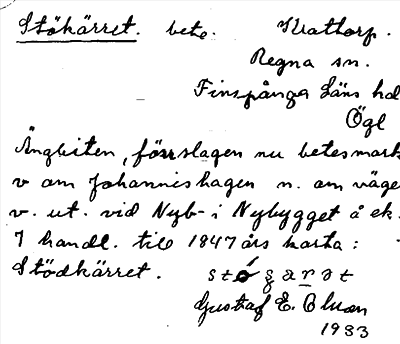 Stökärret. bete. Krattorp.
Regna sn.
Finspånga Läns hd
Ögl
Ängbiten, förr slagen nu betesmark
v om Johannishagen n. om väge
v. ut. vid Nyb- i Nybygget å ek.
I handl. till 1847 års karta:
Stödkärret.
Gustaf E. Oluan
1933